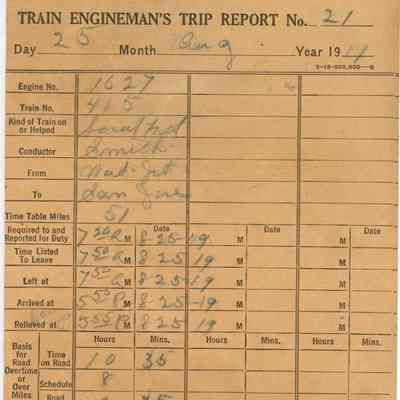 TRAIN ENGINEMAN'S TRIP REPORT No. 21
Day 25 Month Aug Year 19
5-18-500,000—S
Engine No. 1627
Train No. 415
Kind of Train on or Helped Local Frt
Conductor Smith
From Wat. Jct
To San Jose
Time Table Miles 51
Date Date Date
Required to and Reported for Duty 7 20 A M 8 25-19 M M
Time Listed To Leave 7 50 A M 8 25 19 M M
Left at 7 50 A M 8 25-19 M M
Arrived at 5 50 P M 8 25-19 M M
Relieved at 5 55 P M 8 25 19 M M
Basis for Road Overtime or Over Miles
Hours Mins. Hours Mins. Hours
Time on Road 10 35
Schedule 8
Road